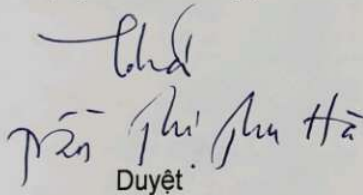 Trần Thị Thu Hà
Duyệt